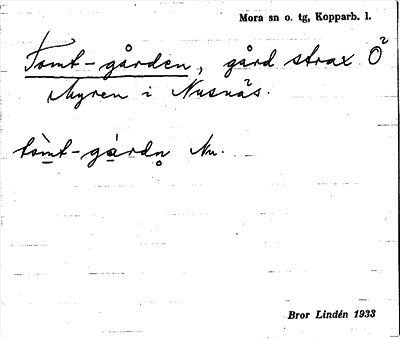 Mora sn o. tg, Kopparb. l.
Tomt-gården, gård strax Ö
Myren i Nusnäs.
tòmt-gárdn Nu.
Bror Lindén 1933